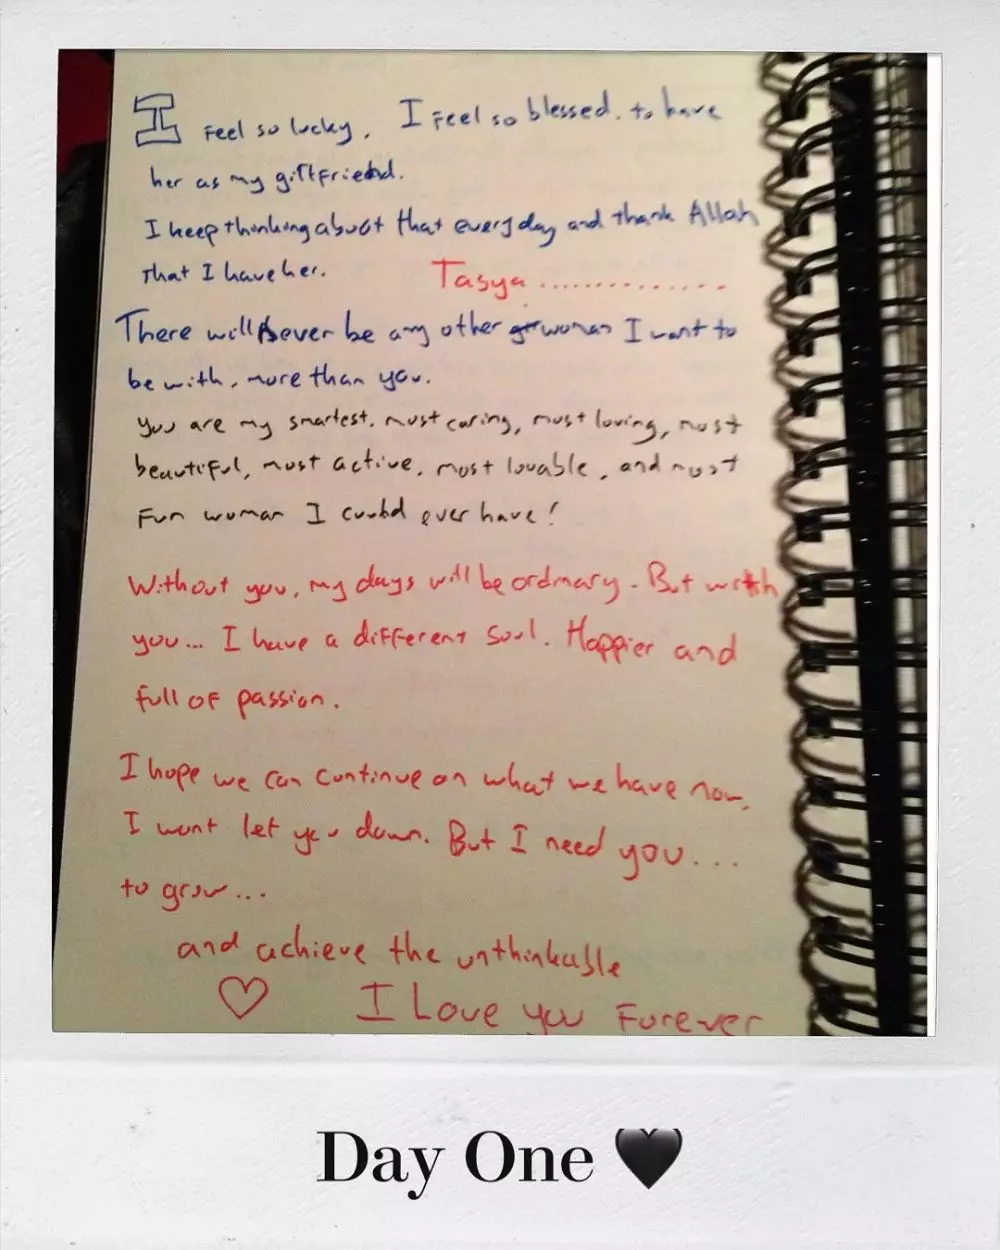 I feel so lucky. I feel so blessed. to have
her as my girlfriend.
I keep thinking about that everyday and thank Allah
that I have her.
Tasya ..............
There will never be any other woman I want to
be with, more than you.
you are my smartest, most caring, most loving, most
beautiful, most active, most lovable, and most
fun woman I could ever have!
Without you, my days will be ordinary. But with
you... I have a different soul. Happier and
full of passion.
I hope we can continue on what we have now,
I wont let you down. But I need you...
to grow...
and achieve the unthinkable
♡ I Love you Forever
Day One 🖤